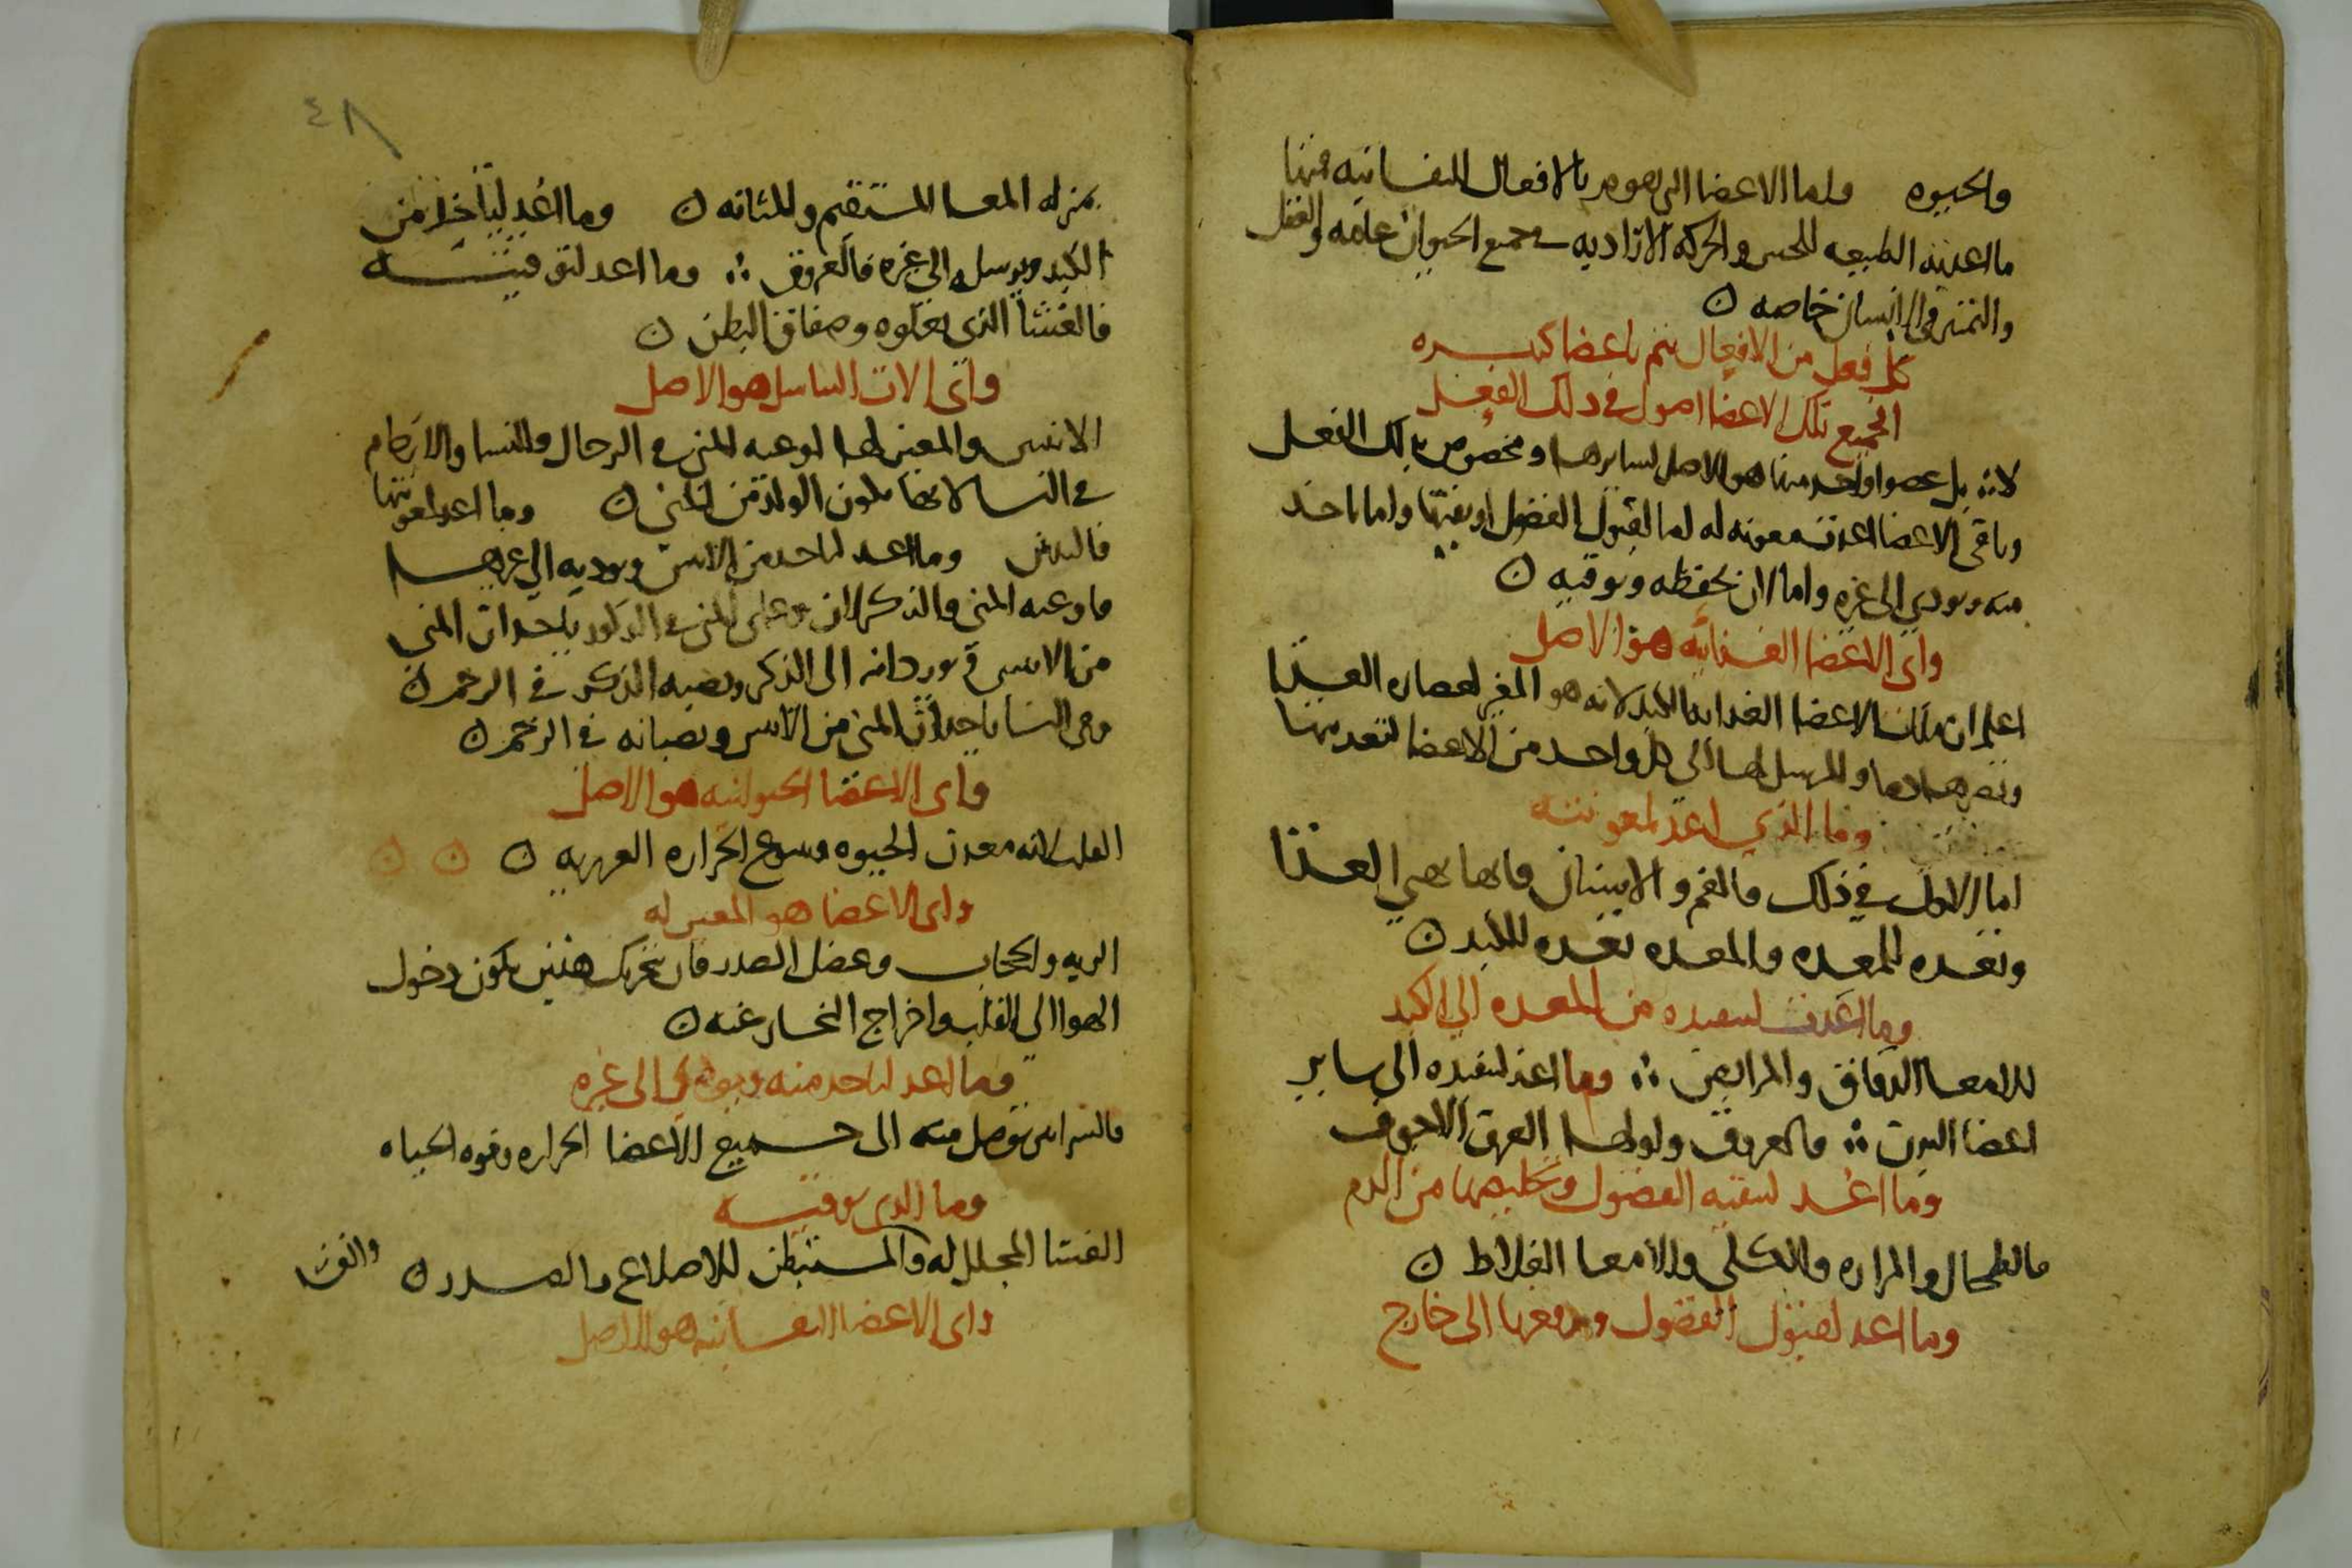 والحيوه واما الاعضا التى تقوم بالافعال النفسانيه فمنها
ما اعدته الطبيعه للحس والحركه الاراديه فى جميع الحيوان عامه والعقل
والتمييز فى الانسان خاصه ن
كل فعل من الافعال يتم باعضا كثيره
الجميع تلك الاعضا اصول فى ذلك الفعل
لا ∴ بل عضوا واحد منها هو الاصل لسايرها ومخصوص بذلك الفعل
وباقى الاعضا اعدت معونه له اما لقبول الفضول او تنقيتها واما ياخذ
منه ويودى الى غيره واما ان يحفظه ويوقيه ن
واى الاعضا الغذائيه هو الاصل
اعلم ان تلك الاعضا الغذاييه الكبد لانه هو المغير لعصاره الغذا
ومصيرها دما والمرسل لها الى كل واحد من الاعضا لتغذيتها
وما الذى اعد لمعونته
اما الاول فى ذلك فالفم والاسنان فانها تهى الغذا
وتعده للمعده والمعده تعده للكبد ن
وما اعدت لتنفيذه من المعده الى الكبد
للامعا الدقاق والمرابض ∴ وما اعد لتنفيذه الى ساير
اعضا البدن ∴ فالعروق واولها العرق الاجوف
وما اعد لتنقيه الفضول وتخليصها من الدم
فالطحال والمراره والكلى والامعا الغلاظ ن
وما اعد لقبول الفضول ودفعها الى خارج
٤٨
بمنزله المعا المستقيم والمثانه ن وما اعد لياخذ من
الكبد ويرسل الى غيره فالعروق ∴ وما اعد لتوقيته
فالغشا الذى يعلوه وصفاق البطن ن
واى الات التناسل هو الاصل
الانثيين والمعين لها اوعيه المنى فى الرجال والنسا والارحام
فى النسا لانها تكون الولد من المنى ن وما اعد لمعونتها
فالبيض وما اعد لياخذ من الانثيين ويوديه الى غيرها
فاوعيه المنى والذكر لان وعاى المنى فى الذكور ياخذان المنى
من الانثيين ويوردانه الى الذكر ويصبه الذكر فى الرحم ن
وفى النسا ياخذان المنى من الانثيين ويصبانه فى الرحم ن
واى الاعضا الحيوانيه هو الاصل
القلب لانه معدن الحيوه وينبوع الحراره الغريزيه ن ن ن
واى الاعضا هو المعين له
الريه والحجاب وعضل الصدر فان بتحريك هذين يكون دخول
الهوا الى القلب واخراج البخار عنه ن
وما اعد لياخذ منه ويودى الى غيره
فالشرايين توصل منه الى جميع الاعضا الحراره وقوه الحياه
وما الذى يوقيه
الغشا المجلل له والمستبطن للاضلاع والصدر ن
واى الاعضا النفسانيه هو الاصل